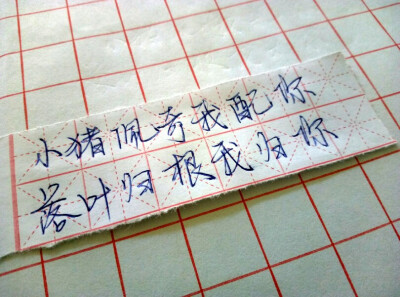 小猪佩奇我配你
落叶归根我归你